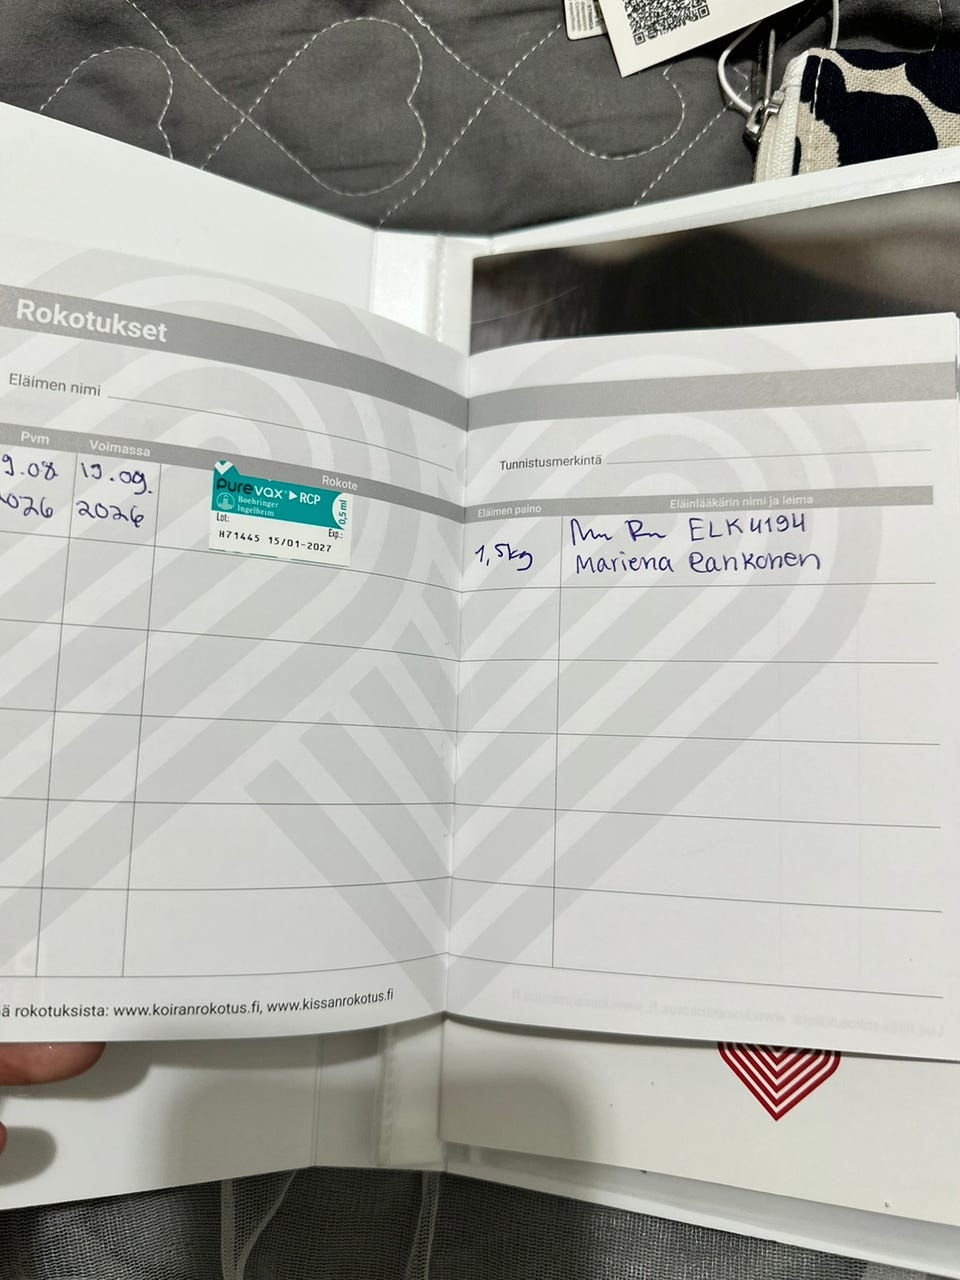 Rokotukset
Eläimen nimi
Pvm Voimassa Rokote
9.08 19.09.
2026 2026
purevax RCP
Boehringer
Ingelheim
0,5 ml
Lot: Exp.:
H71445 15/01-2027
rokotuksista: www.koiranrokotus.fi, www.kissanrokotus.fi
Tunnistusmerkintä
Eläimen paino Eläinlääkärin nimi ja leima
1,5kg
ELK4194
Mariena Rankonen